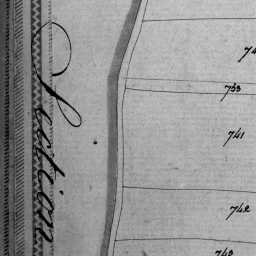 Section
733
741
742
743